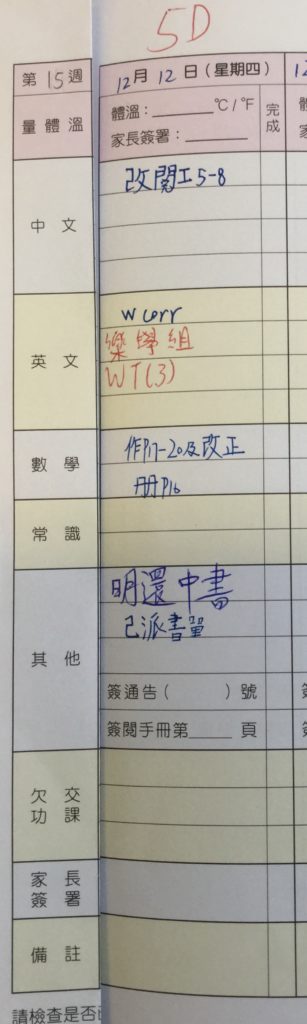 5D
第15週
12月12日(星期四)
12
量體溫
體溫:______℃/℉
家長簽署:______
完成
中文
改閱工5-8
英文
W corr
樂學組
WT(3)
數學
作P17-20及改正
册P16
常識
其他
明還中書
已派書單
簽通告( )號
簽閱手冊第____頁
欠交功課
家長簽署
備註
請檢查是否